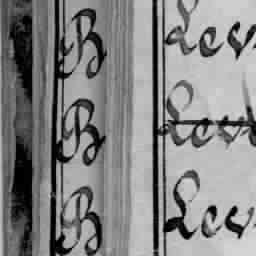 B Lev
B Lev
B Lev